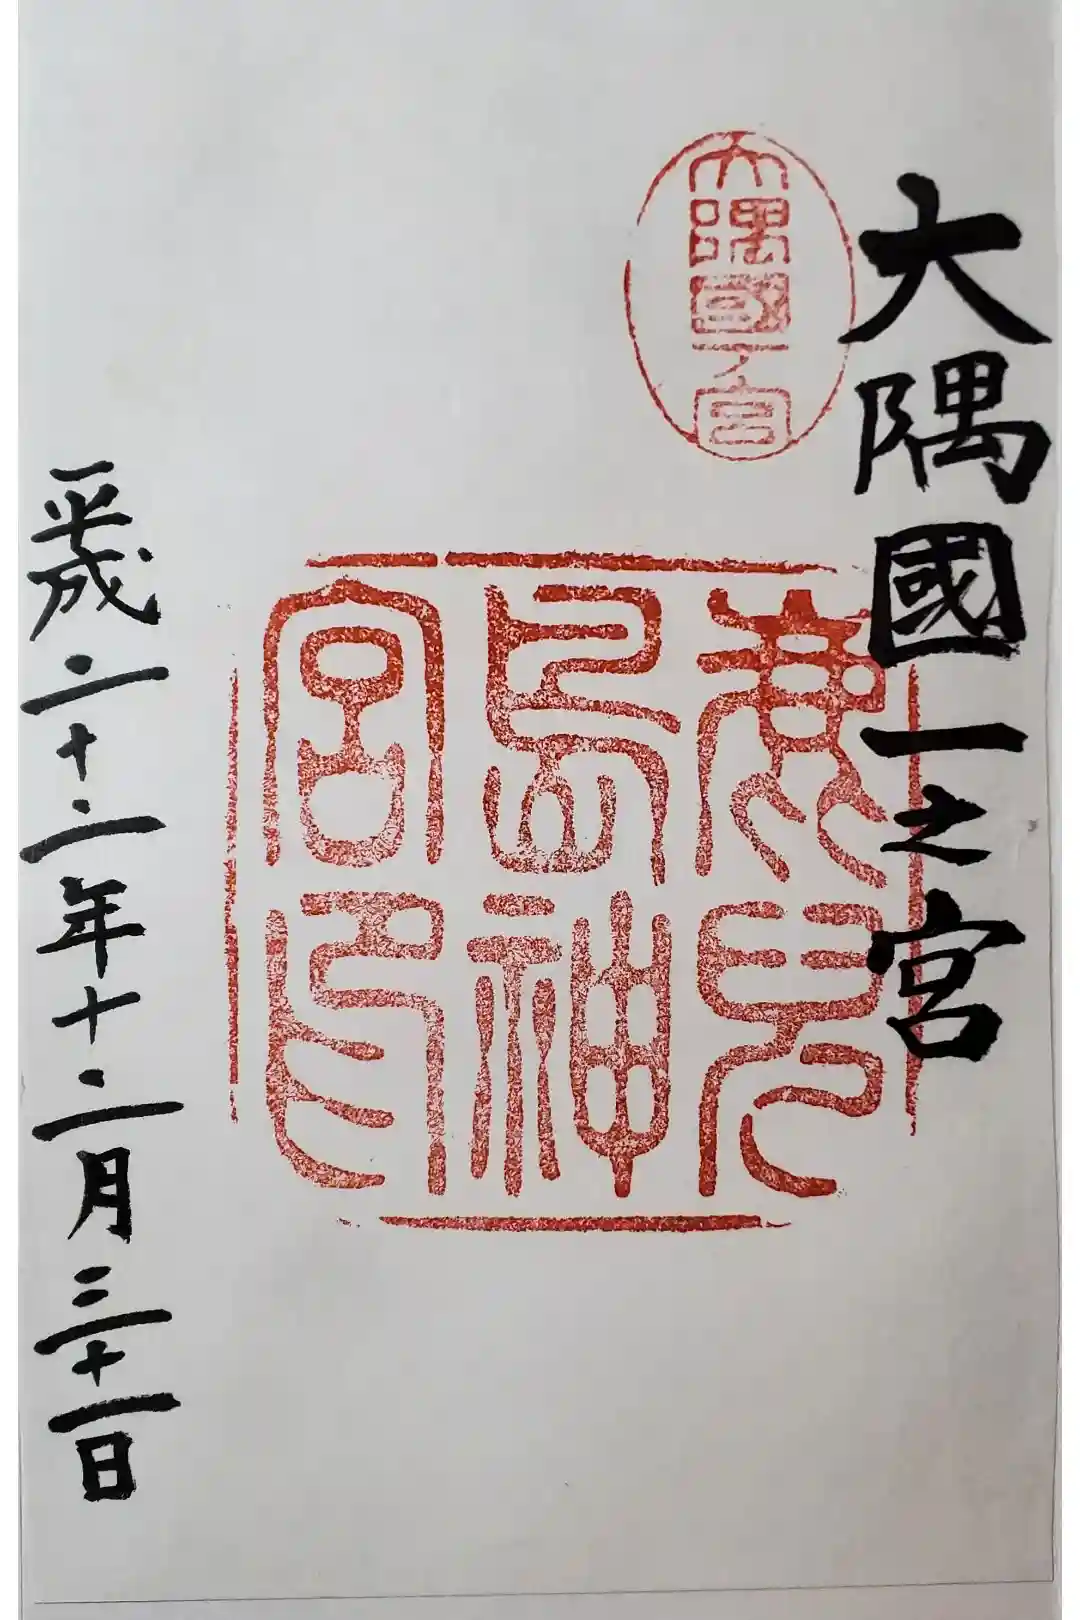 大隅國一之宮
大隅國一宮
鹿兒
島神
宮印
平成二十二年十二月三十一日